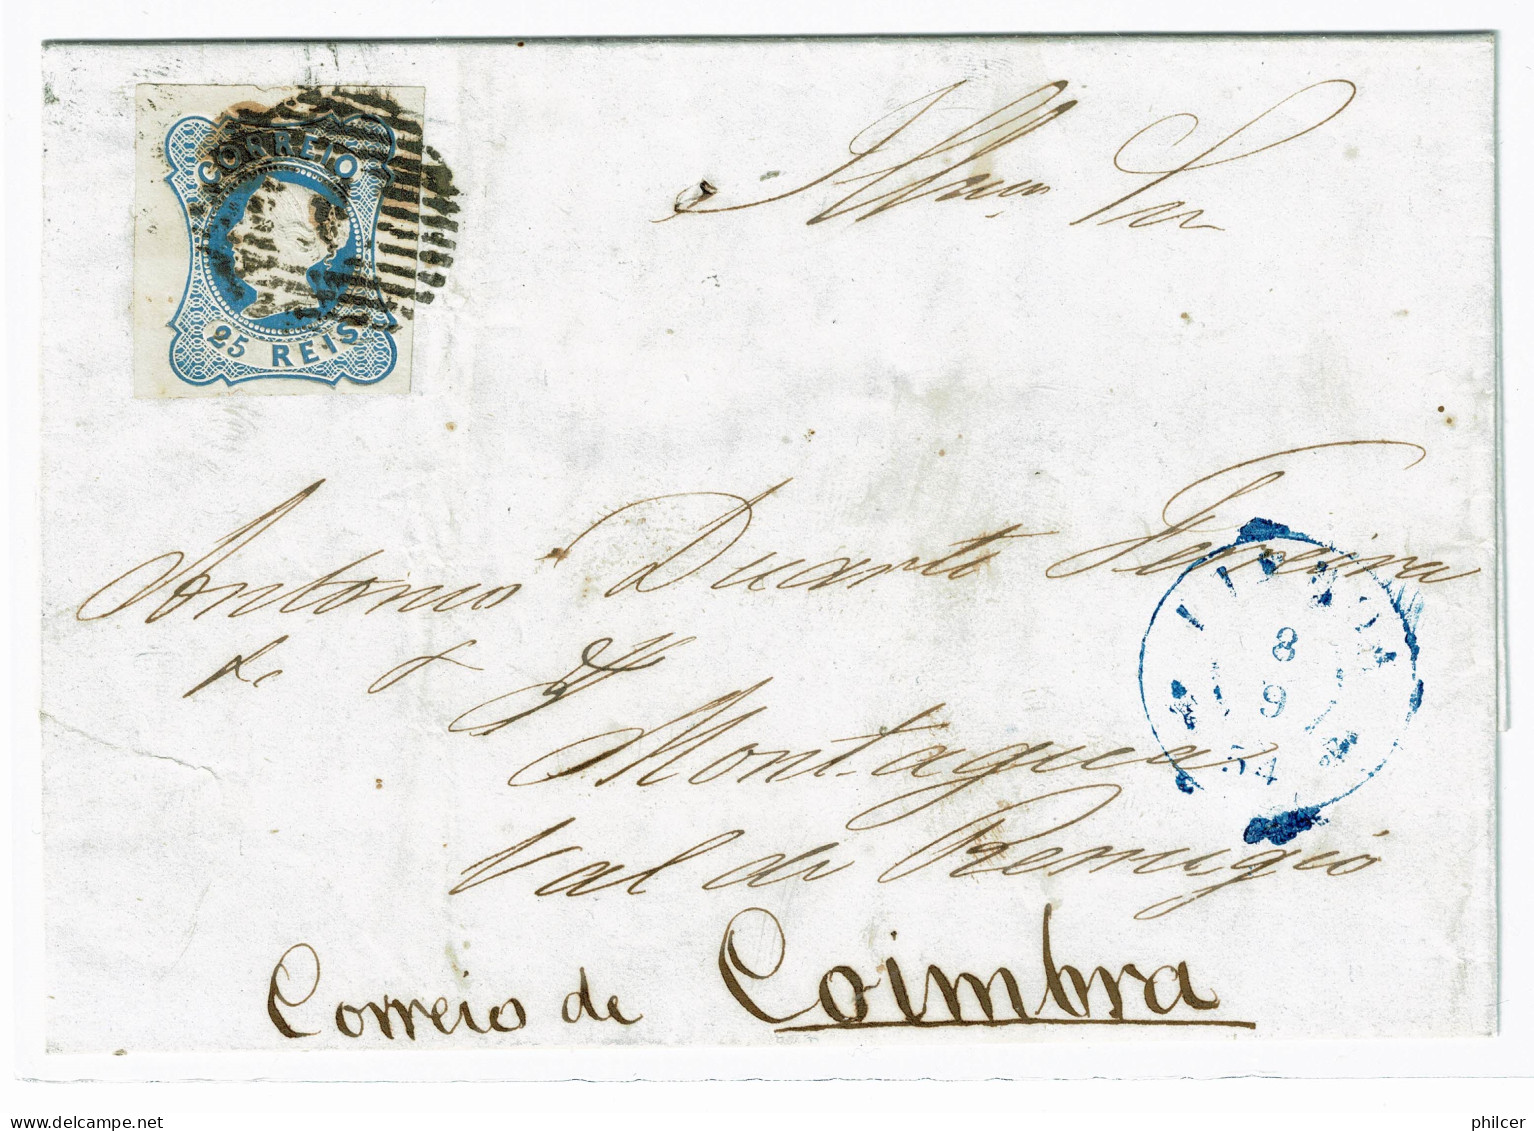 CORREIO
25 REIS
Illmo Snr
Antonio Duarte Ferreira
Montagua
Val de Remigio
Correio de Coimbra
8
9
54
delcampe.net
philcer